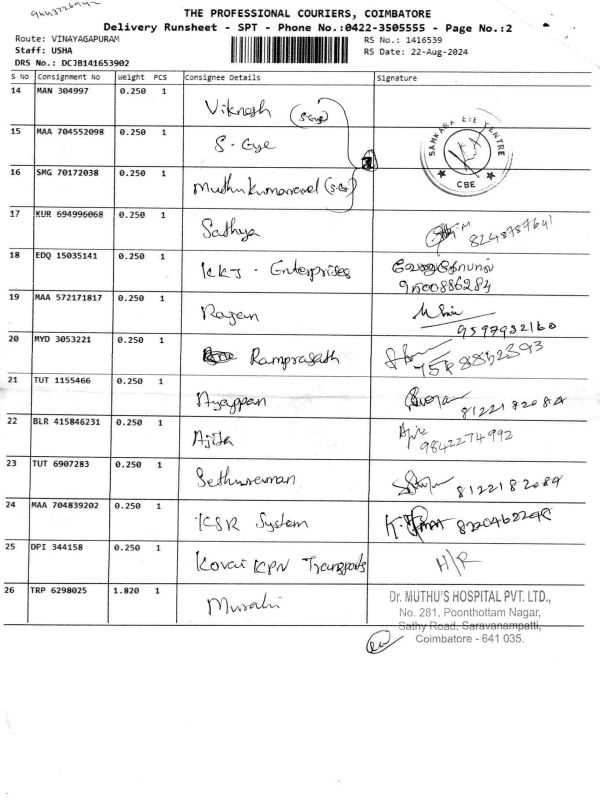 9443726942
THE PROFESSIONAL COURIERS, COIMBATORE
Delivery Runsheet - SPT - Phone No.:0422-3505555 - Page No.:2
Route: VINAYAGAPURAM
Staff: USHA
DRS No.: DCJB141653902
RS No.: 1416539
RS Date: 22-Aug-2024
S No Consignment No Weight PCS Consignee Details Signature
14 MAN 304997 0.250 1 Viknesh (S-Eye)
15 MAA 704552098 0.250 1 S-Eye
SANKARA EYE CENTRE
CBE
16 SMG 70172038 0.250 1 Muthukumaravel
17 KUR 694996068 0.250 1 Sathya 8248787641
18 EDQ 15035141 0.250 1 KKJ - Enterprises வேணுகோபால்
9500886284
19 MAA 572171817 0.250 1 Rajan
9597932160
20 MYD 3053221 0.250 1 Ramprasath 75R8852393
21 TUT 1155466 0.250 1 Ayyappan 8122182084
22 BLR 415846231 0.250 1 Ajita
9842274992
23 TUT 6907283 0.250 1 Sethuraman 8122182084
24 MAA 704839202 0.250 1 KSR System
25 DPI 344158 0.250 1 Kovai KPN Transports H/R
26 TRP 6298025 1.820 1 Murali
Dr. MUTHU'S HOSPITAL PVT. LTD.,
No. 281, Poonthottam Nagar,
Sathy Road, Saravanampatti,
Coimbatore - 641 035.